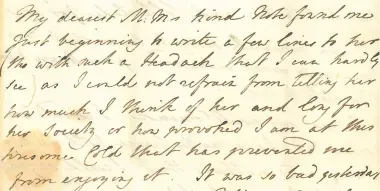 My dearest M. Ms kind Note found me
just beginning to write a few lines to her
tho with such a Headach that I can hardly
see as I could not refrain from telling her
how much I think of her and long for
her Society or how provoked I am at this
tiresome Cold that has prevented me
from enjoying it. It was so bad yesterday